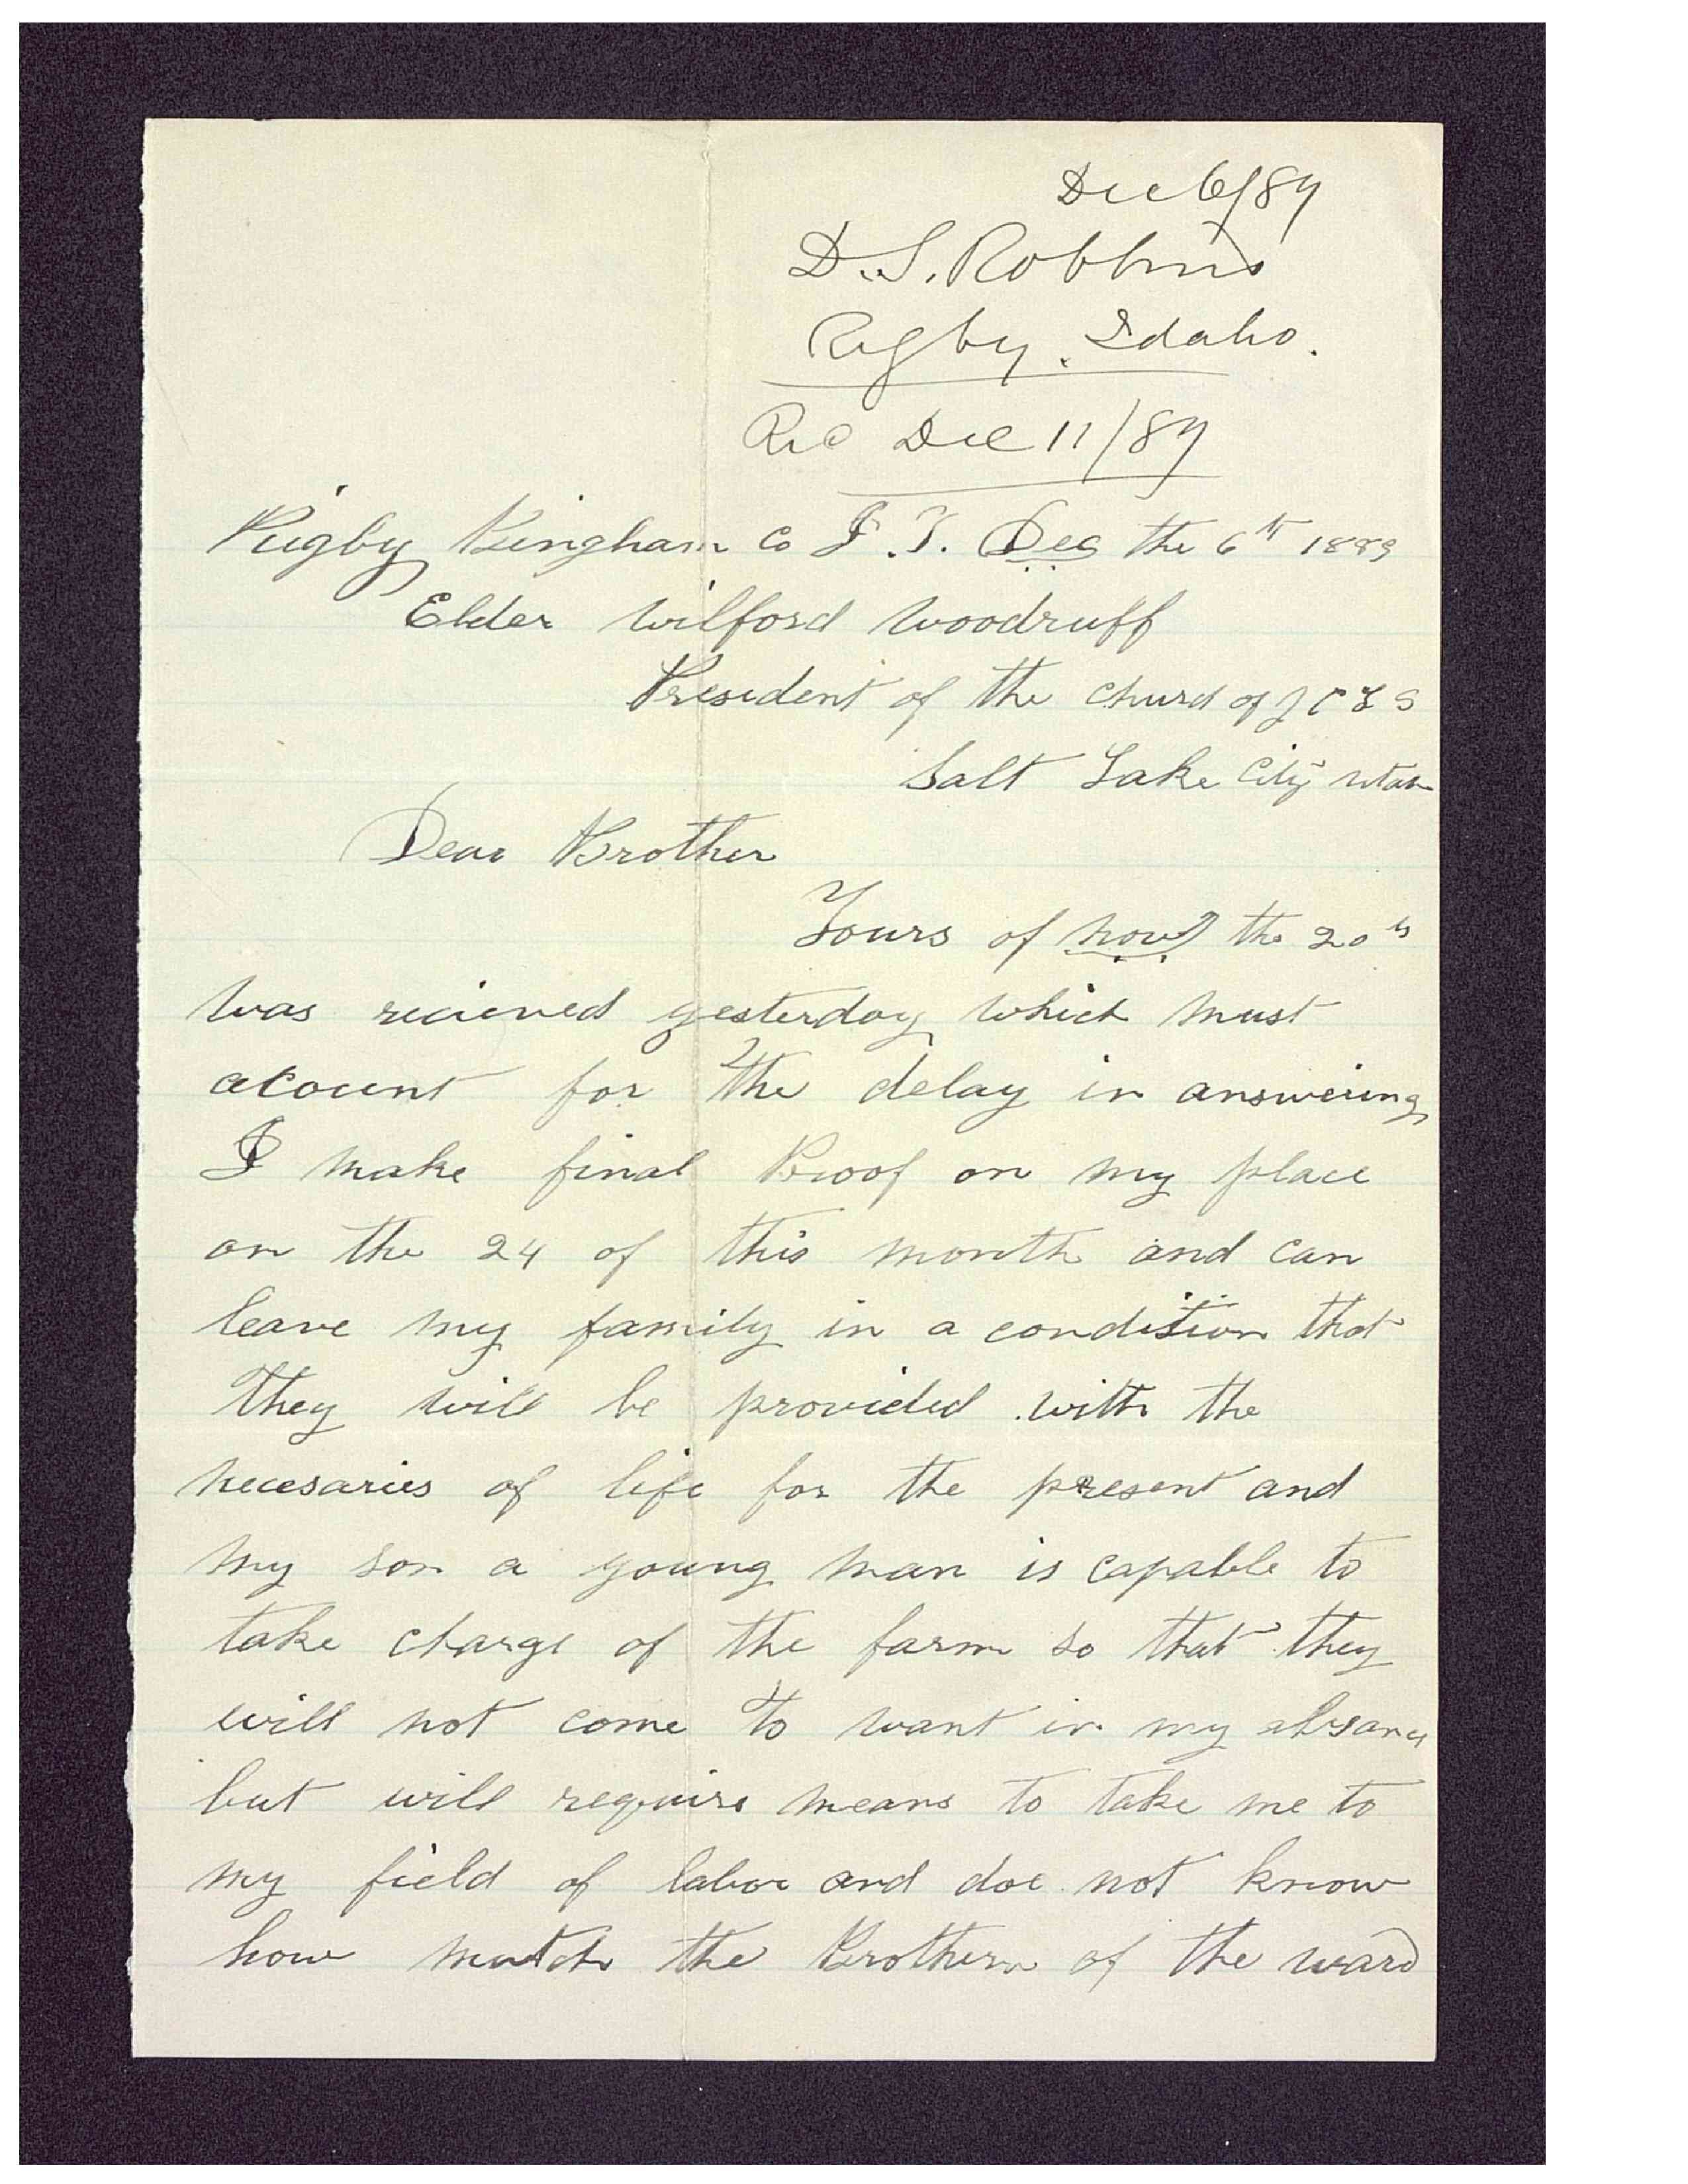 Dec 6/89
D. S. Robbins
Rigby. Idaho.
Rec Dec 11/89
Rigby Bingham Co I.T. Dec the 6th 1889
Elder Wilford Woodruff
President of the Church of J C L S
Salt Lake City Utah
Dear Brother
Yours of Nov the 20th
was recieved yesterday which must
acount for the delay in answering
I make final Proof on my place
on the 24 of this month and can
leave my family in a condition that
they will be provided with the
necesaries of life for the present and
my son a young man is capable to
take charge of the farm so that they
will not come to want in my absance
but will require means to take me to
my field of labor and doe not know
how mutch the Brothern of the ward